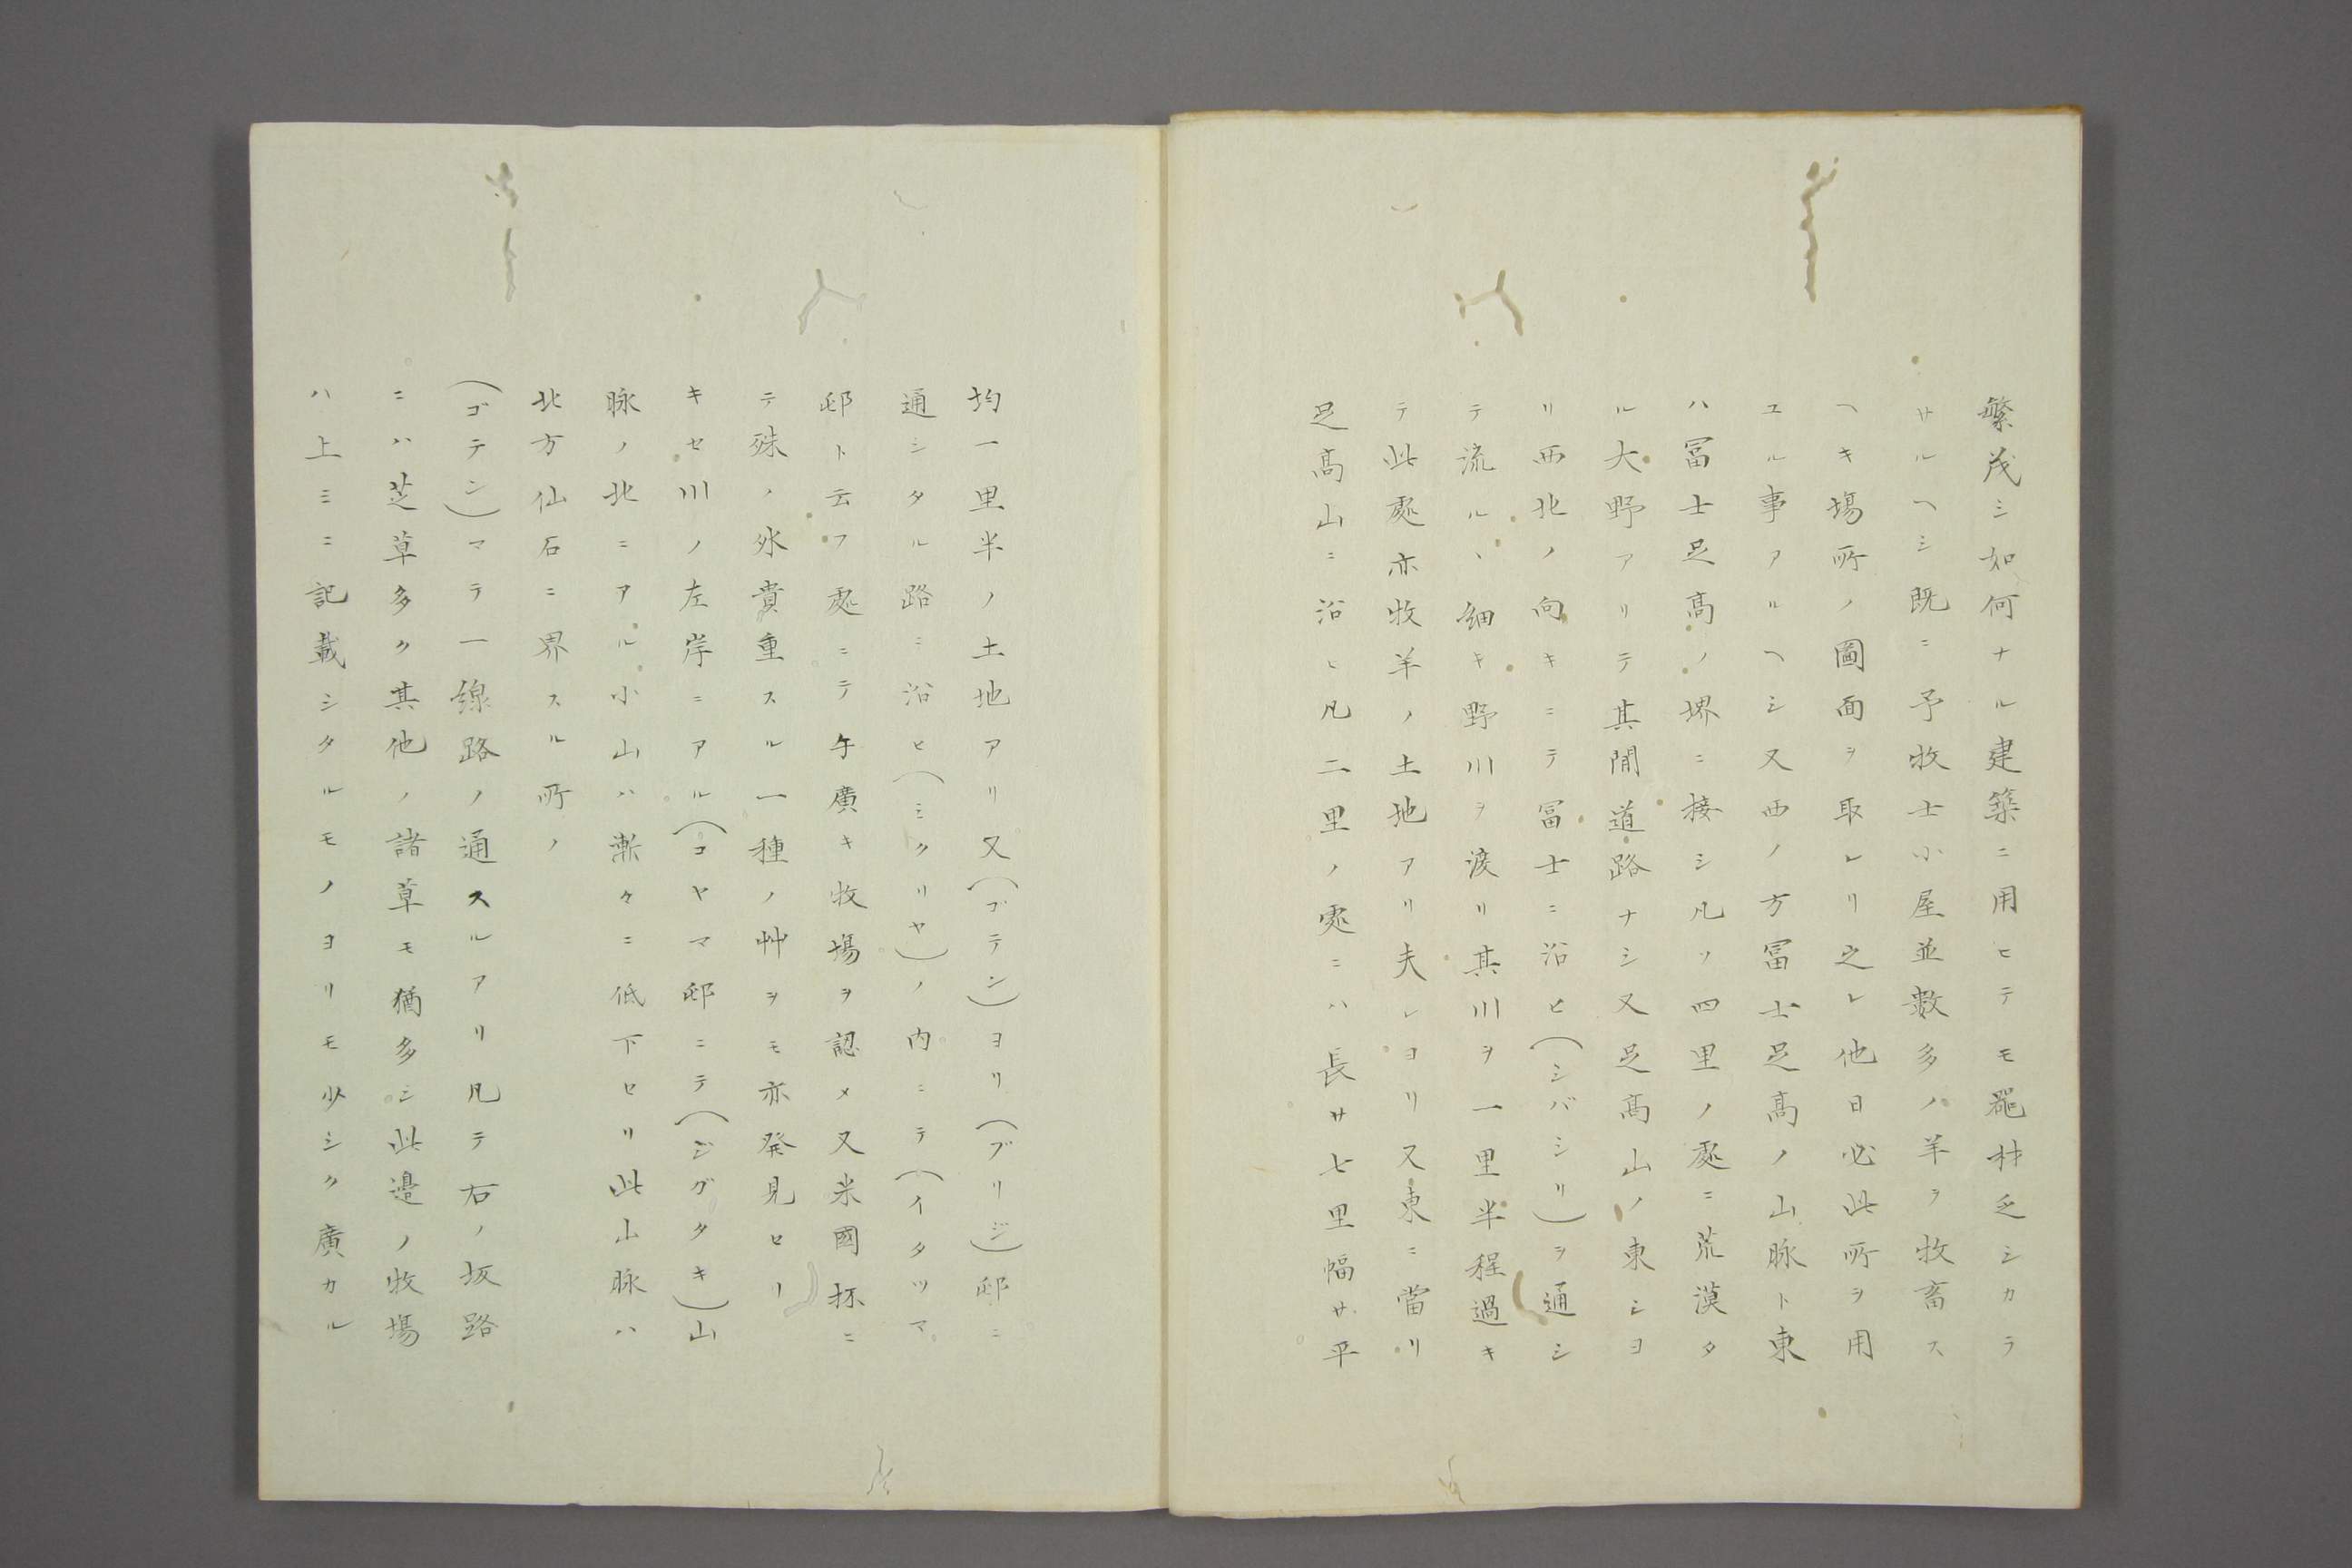 繁茂シ如何ナル建築ニ用ヒテモ器材乏シカラ
サルヘシ既ニ予牧士小屋並數多ノ羊ヲ牧畜ス
ヘキ場所ノ圖面ヲ取レリ之レ他日必此所ヲ用
ユル事アルヘシ又西ノ方冨士足高ノ山脉ト東
ハ冨士足高ノ堺ニ接シ凡ソ四里ノ處ニ荒漠タ
ル大野アリテ其間道路ナシ又足高山ノ東シヨ
リ西北ノ向キニテ冨士ニ沿ヒ(シバシリ)ヲ通シ
テ流ルヽ細キ野川ヲ渡リ其川ヲ一里半程過キ
テ此處亦牧羊ノ土地アリ夫レヨリ又東ニ當リ
足高山ニ沿ヒ凡二里ノ處ニハ長サ七里幅サ平
均一里半ノ土地アリ又(ゴテン)ヨリ(ブリジ)邸ニ
通シタル路ニ沿ヒ(ミクリヤ)ノ内ニテ(イタツマ
邸ト云フ處ニテ手廣キ牧場ヲ認メ又米國抔ニ
テ殊ノ外貴重スル一種ノ艸ヲモ亦発見セリ
キセ川ノ左岸ニアル(コヤマ邸ニテ(ジグタキ)山
脉ノ北ニアル小山ハ漸々ニ低下セリ此山脉ハ
北方仙石ニ界スル所ノ
(ゴテン)マテ一線路ノ通スルアリ凡テ右ノ坂路
ニハ芝草多ク其他ノ諸草モ猶多シ此邉ノ牧場
ハ上ミニ記載シタルモノヨリモ少シク廣カル